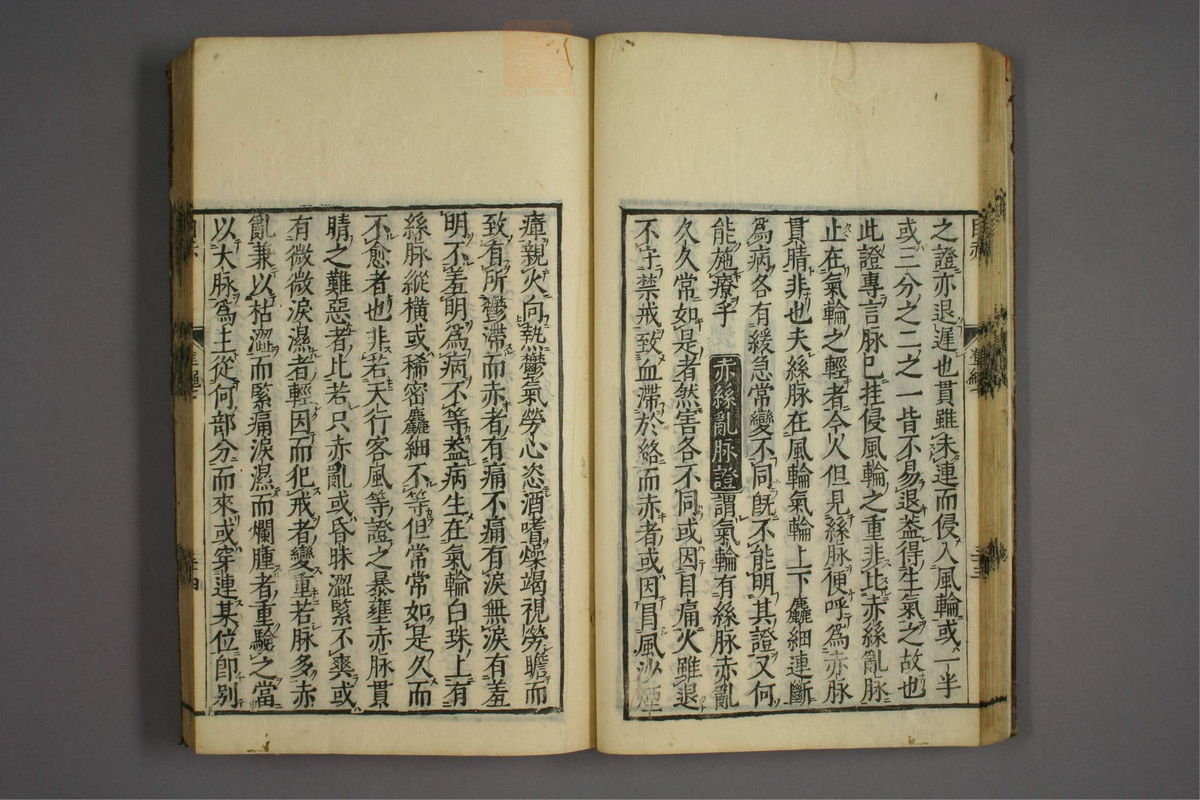 之證亦退遲也貫雖未連而侵入風輪或一半
或三分之二之一皆不易退葢得生氣之故也
此證專言脉已挂侵風輪之重非比赤絲亂脉
止在氣輪之輕者今火但見絲脉便呼爲赤脉
貫睛非也夫絲脉在風輪氣輪上下麤細連斷
爲病各有緩急常變不同旣不能明其證又何
能施療乎 赤絲亂脉證 謂氣輪有絲脉赤亂
久久常如是者然害各不同或因目痛火雖退
不守禁戒致血滯於絡而赤者或因冒風沙煙
瘴親火向熱鬱氣勞心恣酒嗜燥竭視勞瞻而
致有所鬱滯而赤者有痛不痛有淚無淚有羞
明不羞明爲病不等葢病生在氣輪白珠上有
絲脉縱橫或稀密麤細不等但常常如是久而
不愈者也非若天行客風等證之暴壅赤脉貫
睛之難惡者比若只赤亂或昏昧澀緊不爽或
有微微淚濕者輕因而犯戒者變重若脉多赤
亂兼以枯澀而緊痛淚濕而爛腫者重驗之當
以大脉爲主從何部分而來或穿連某位卽別